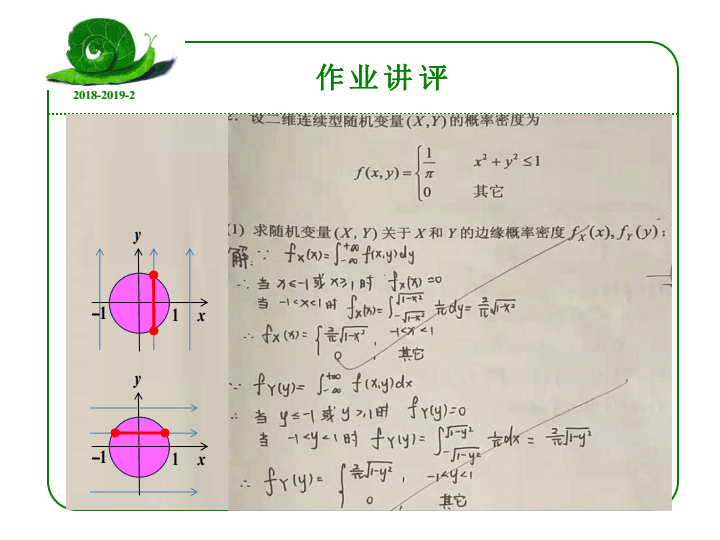 2018-2019-2
作业讲评
2. 设二维连续型随机变量(X,Y)的概率密度为
f(x,y)={ 1/π x²+y²≤1
0 其它
(1) 求随机变量(X,Y)关于X和Y的边缘概率密度f_X(x),f_Y(y);
解: ∵ f_X(x)=∫_{-∞}^{+∞} f(x,y)dy
∴ 当 x≤-1 或 x≥1 时 f_X(x)=0
当 -1<x<1 时 f_X(x)=∫_{-√(1-x²)}^{√(1-x²)} 1/π dy= 2/π √(1-x²)
∴ f_X(x)={ 2/π √(1-x²), -1<x<1
0, 其它
∵ f_Y(y)=∫_{-∞}^{+∞} f(x,y)dx
∴ 当 y≤-1 或 y≥1 时 f_Y(y)=0
当 -1<y<1 时 f_Y(y)=∫_{-√(1-y²)}^{√(1-y²)} 1/π dx = 2/π √(1-y²)
∴ f_Y(y)={ 2/π √(1-y²), -1<y<1
0, 其它
y
-1 1 x
y
-1 1 x